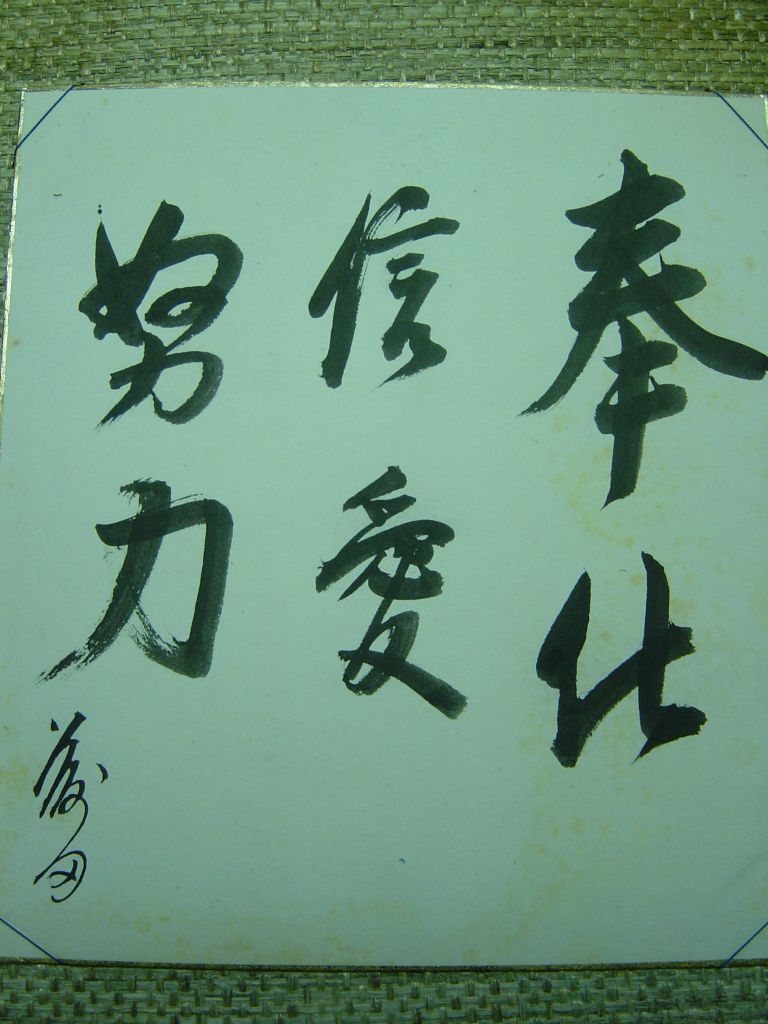 奉仕
信愛
努力